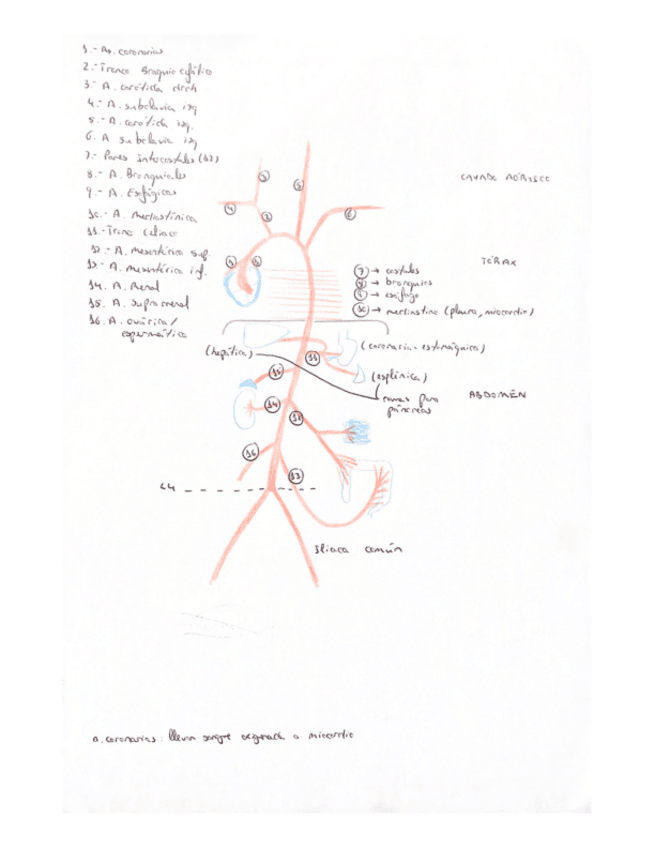 1.- As. coronarias
2.- Tronco Braquiocefálico
3.- A. carótida drch
4.- A. subclavia izq
5.- A. carótida izq.
6. A subclavia izq
7.- Pares intercostales (12)
8.- A. Bronquiales
9.- A. Esofágicas
10.- A. mediastínica
11.- Tronco Celiaco
12.- A. mesentérica sup.
13.- A. mesentérica inf.
14. A. Renal
15. A. Suprarrenal
16. A. ovárica /
espermática
3
5
4
2
6
CAYADO AÓRTICO
1
1
TÓRAX
7 → costales
8 → bronquios
9 → esófago
10 → mediastino (pleura, miocardio)
(hepática)
11
(coronaria - estomáquica)
15
(esplénica)
ramas para
páncreas
ABDOMEN
14
12
16
13
L4
Iliaca común
a. coronarias: llevan sangre oxigenada a miocardio